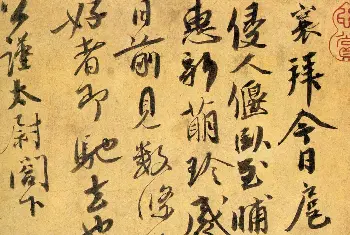 襄拜今日扈
侵人偃臥至晡
惠新萌珍感
日前見數條
好者即馳去也
公謹太尉閣下